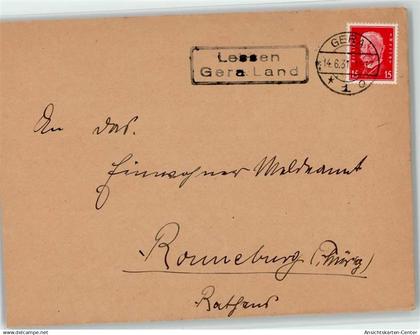 Lessen
Gera Land
GERA
14.6.31
1
15 15
An das
Einwohner Meldeamt
Ronneburg (Thürg)
Rathaus
Ansichtskarten-Center